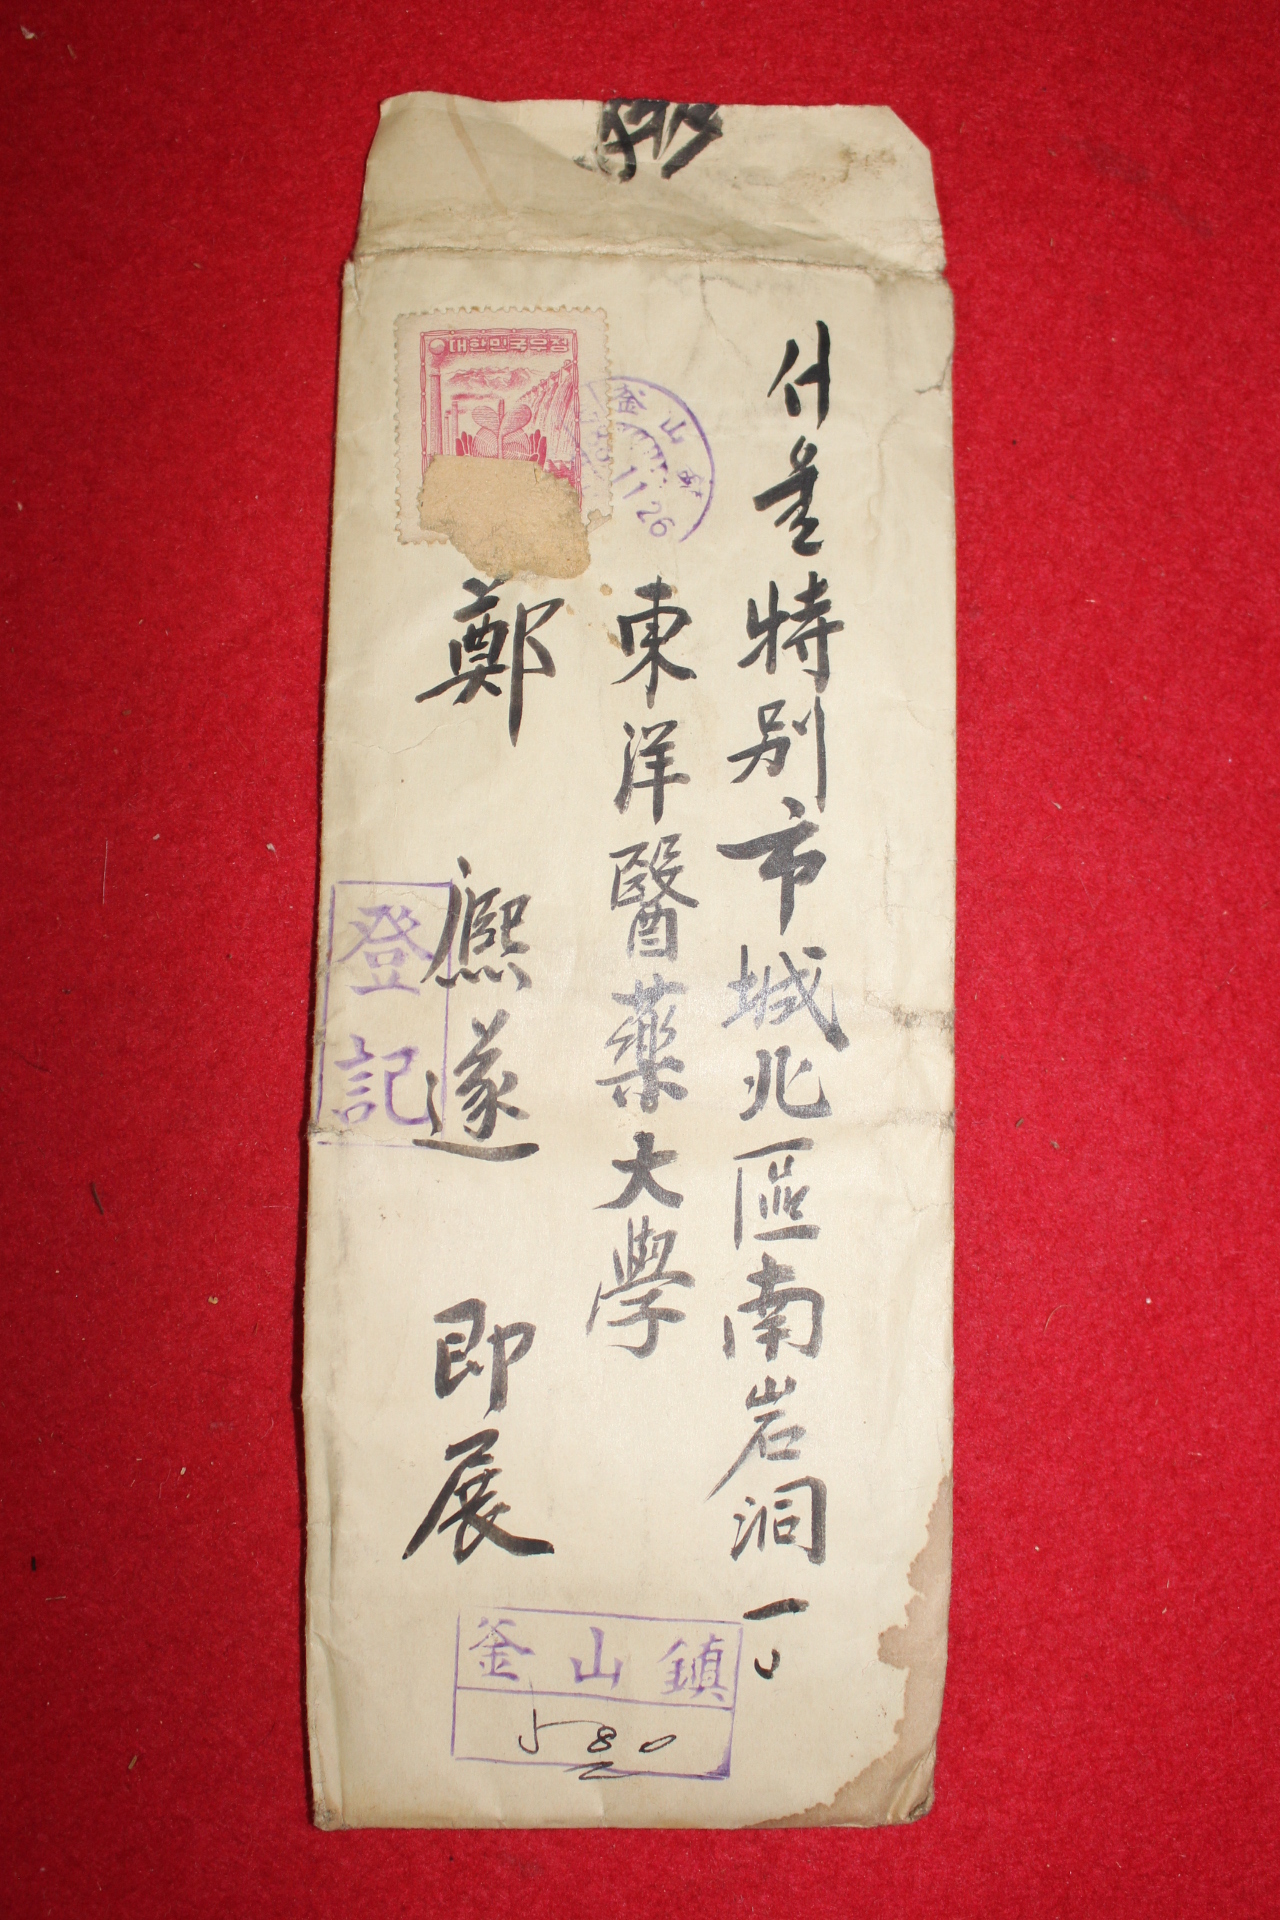 대한민국우정
釜山
11 26
서울特别市城北區南岩洞一
東洋醫藥大學
鄭熙遂 即展
登記
釜山鎮
580